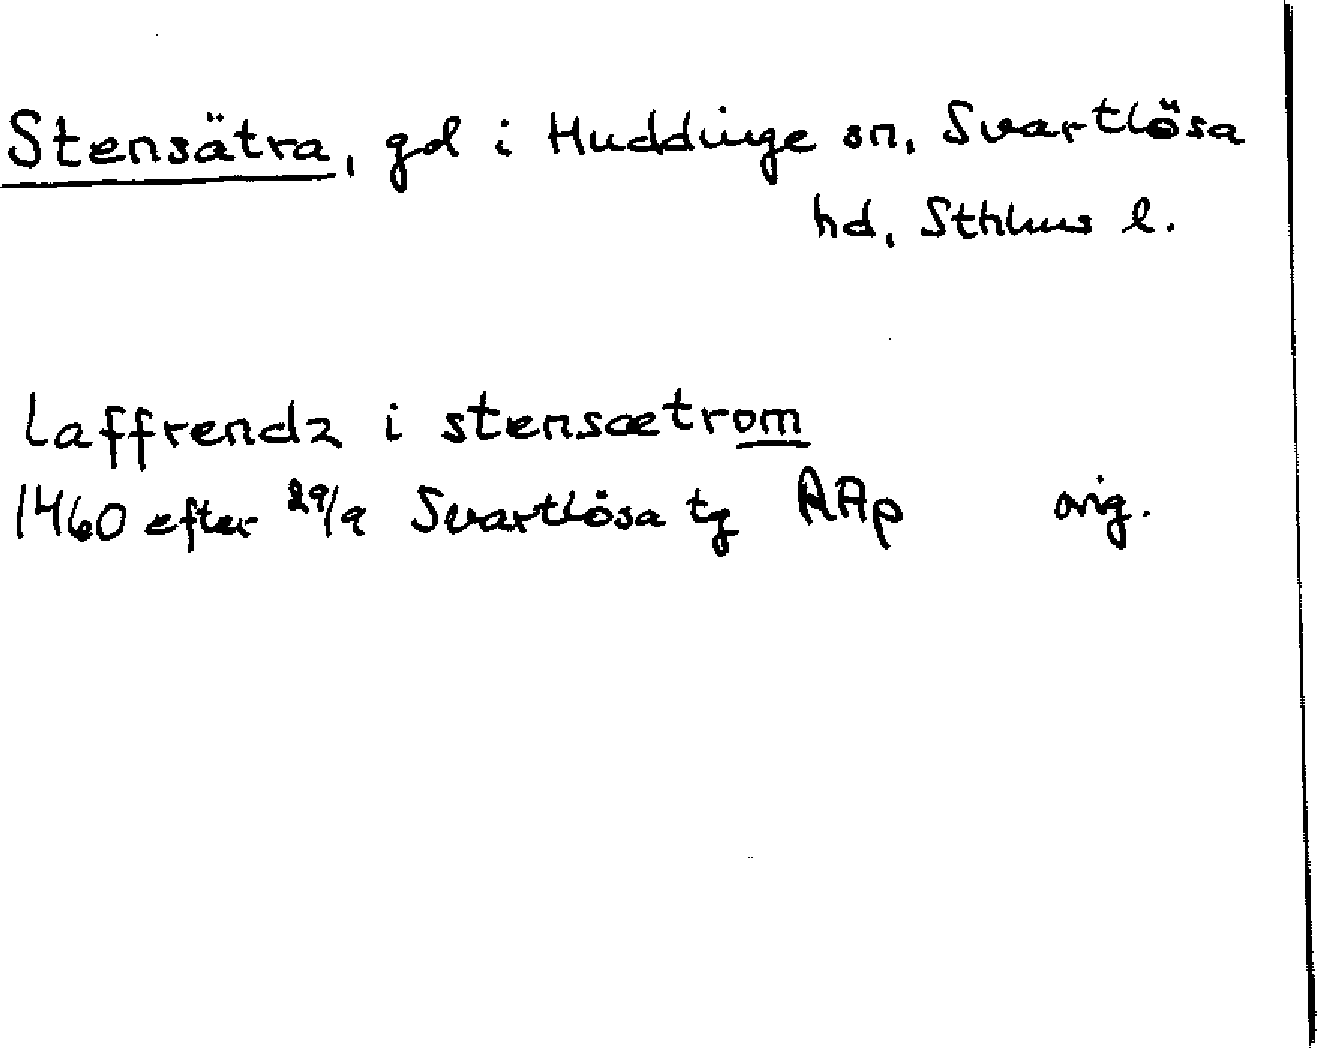 Stensätra, gd i Huddinge sn, Svartlösa
hd, Sthlms l.
laffrendz i stensætrom
1460 efter 29/9 Svartlösa tg AAp orig.